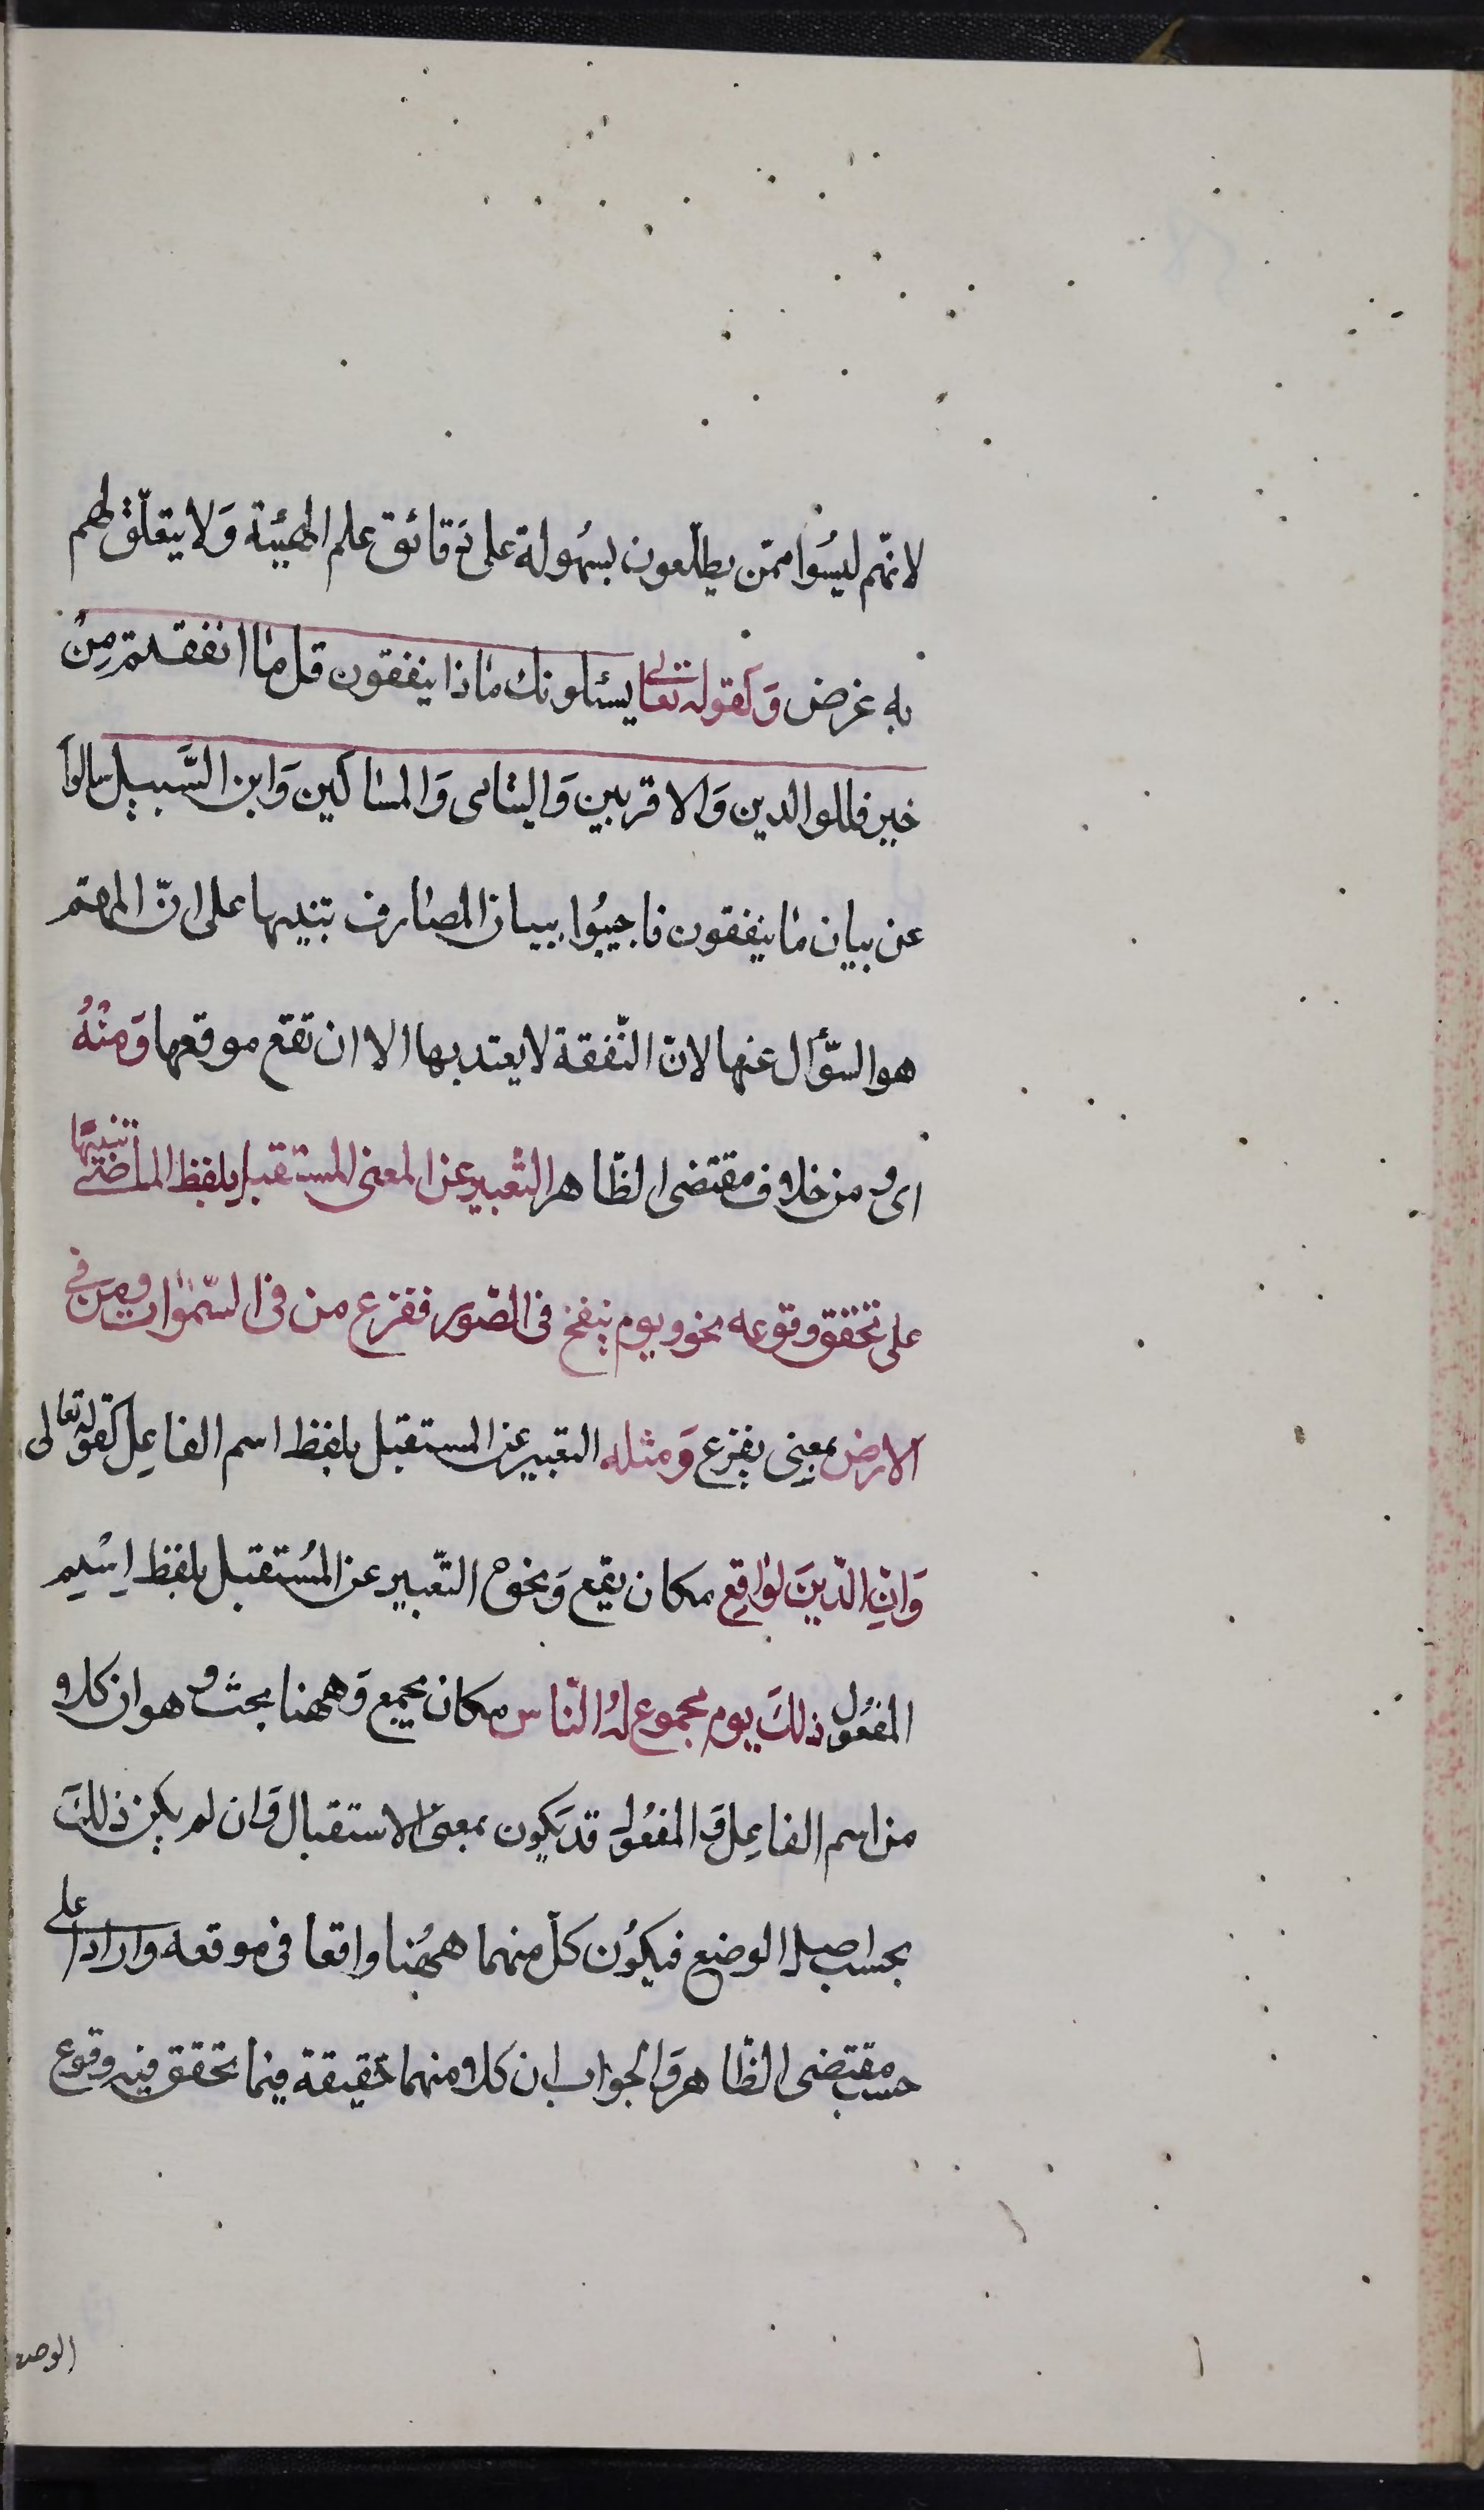 لانهم ليسُوا ممّن يطلّعون بسهُولة على دقائق علم الهيئة وَلا يتعلّق لهم
به غرض وَكقوله تعالى يسئلونك ماذا ينفقون قل ما انفقتم مِنْ
خير فللوالدين وَالاقربين وَاليتامى وَالمساكين وَابن السَّبيل سالوا
عن بيان ما ينفقون فاجيبُوا ببيان المصارف تنبيها على انّ المهتم
هو السّؤال عنها لان النّفقة لا يعتد بها الا ان تقع موقعها وَمنْهُ
اى و من خلاف مقتضى الظّاهر التّعبير عن المعنى المستقبل بلفظ الماضى تنبيهًا
على تحقق وقوعه نحو ويوم ينفخ فى الصّور ففزع من فى السّموات ومن فى
الارض بمعنى يفزع وَمثله التعبير عن المستقبل بلفظ اسم الفاعِل كقوله تعالى
وَانّ الدّينَ لواقِع مكان يقع وَنحوه التّعبير عن المُستقبل بلفظ اِسْم
المفعُول ذلكَ يوم مجموع لهُ النّاس مكان يجمع وَههنا بحث و هو ان كلا
من اسم الفاعِل وَالمفعُول قد يكون بمعنى الاستقبال وَان لم يكن ذلكَ
بحسب اصل الوضع فيكوُن كلّ منهما ههُنا واقعا فى موقعه واردا على
حسب مقتضى الظّاهر وَالجواب ان كلا منهما حقيقة فيما تحقق فيه وقوع
الوصف